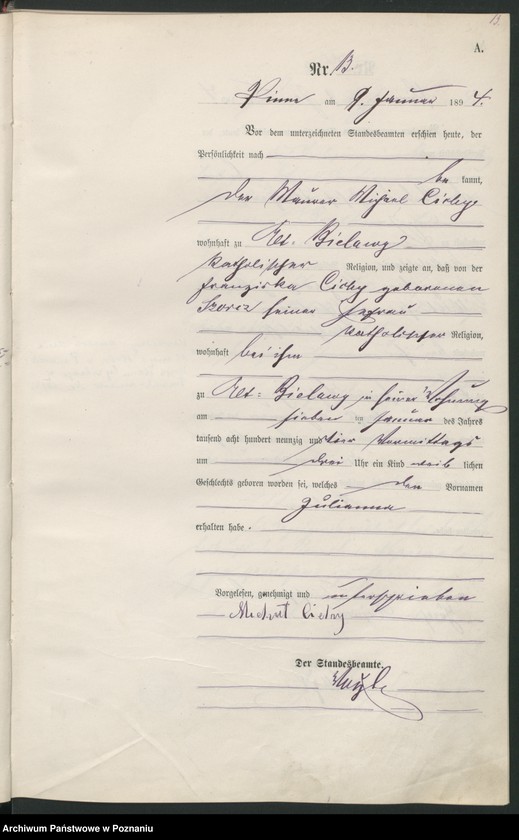 13.
A.
Nr. 13.
Pinne am 9. Januar 1894.
Vor dem unterzeichneten Standesbeamten erschien heute, der
Persönlichkeit nach
be kannt,
der Maurer Michael Cichy
wohnhaft zu Alt-Bielawy
katholischer Religion, und zeigte an, daß von der
Franziska Cichy geborenen
seiner Ehefrau
katholischer Religion,
wohnhaft bei ihm
zu Alt-Bielawy in seiner Wohnung
am sieben ten Januar des Jahres
tausend acht hundert neunzig und vier Vormittags
um drei Uhr ein Kind weib lichen
Geschlechts geboren worden sei, welches den Vornamen
Julianna
erhalten habe.
Vorgelesen, genehmigt und unterschrieben
Michał Cichy
Der Standesbeamte.
Archiwum Państwowe w Poznaniu